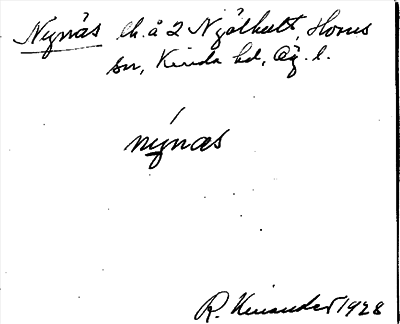 Nynäs lh. å 2 Nyälhult, Horns
sn, Kinda hd, Ög. l.
nýnæs
R. Kinander 1928